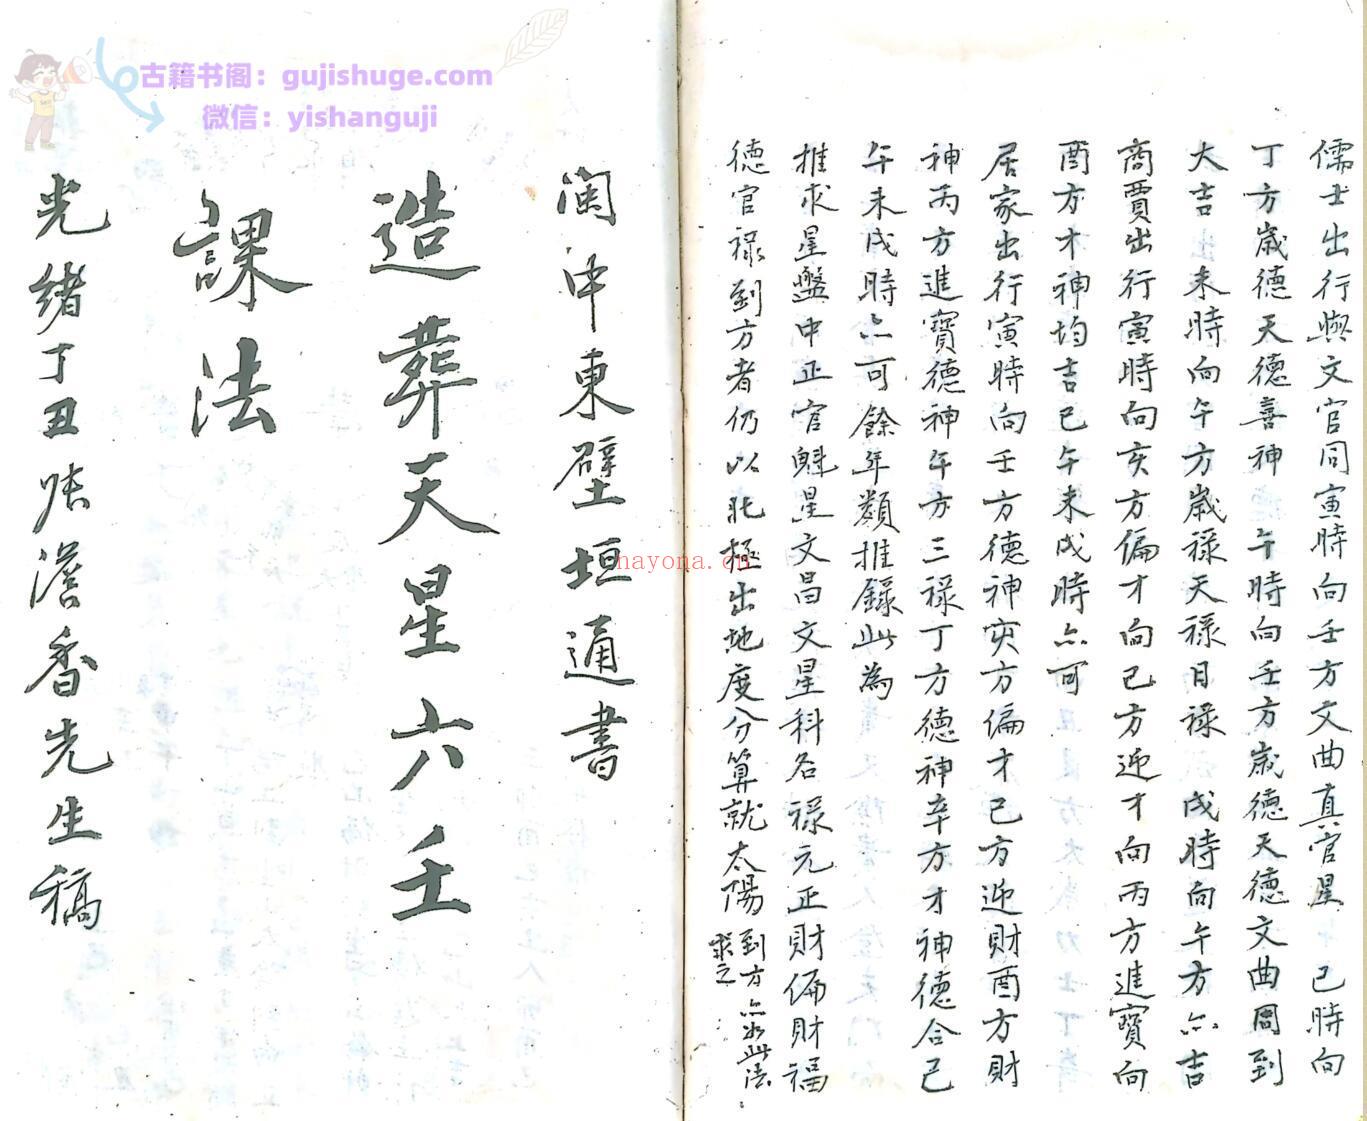 古籍书阁：gujishuge.com
微信：yishanguji
儒士出行與文官同寅時向壬方文曲真官星午巳時向
丁方歲德天德喜神午時向壬方歲德天德文曲周到
大吉出未時向午方歲祿天祿日祿戌時向午方亦吉
商賈出行寅時向亥方偏才向己方迎才向丙方進寶向
酉方才神均吉巳午未戌時亦可
居家出行寅時向壬方德神寅方偏才己方迎財酉方財
神丙方進寶德神午方三祿丁方德神辛方才神德合己
午未戌時亦可餘年類推錄此為
推求星盤中正官魁星文昌文星科名祿元正財偏財福
德官祿到方者仍以北極出地度分算就太陽到方亦必此法
求之
nayona.cn
閩中東壁垣通書
造葬天星六壬
課法
光緒丁丑味澹香先生稿